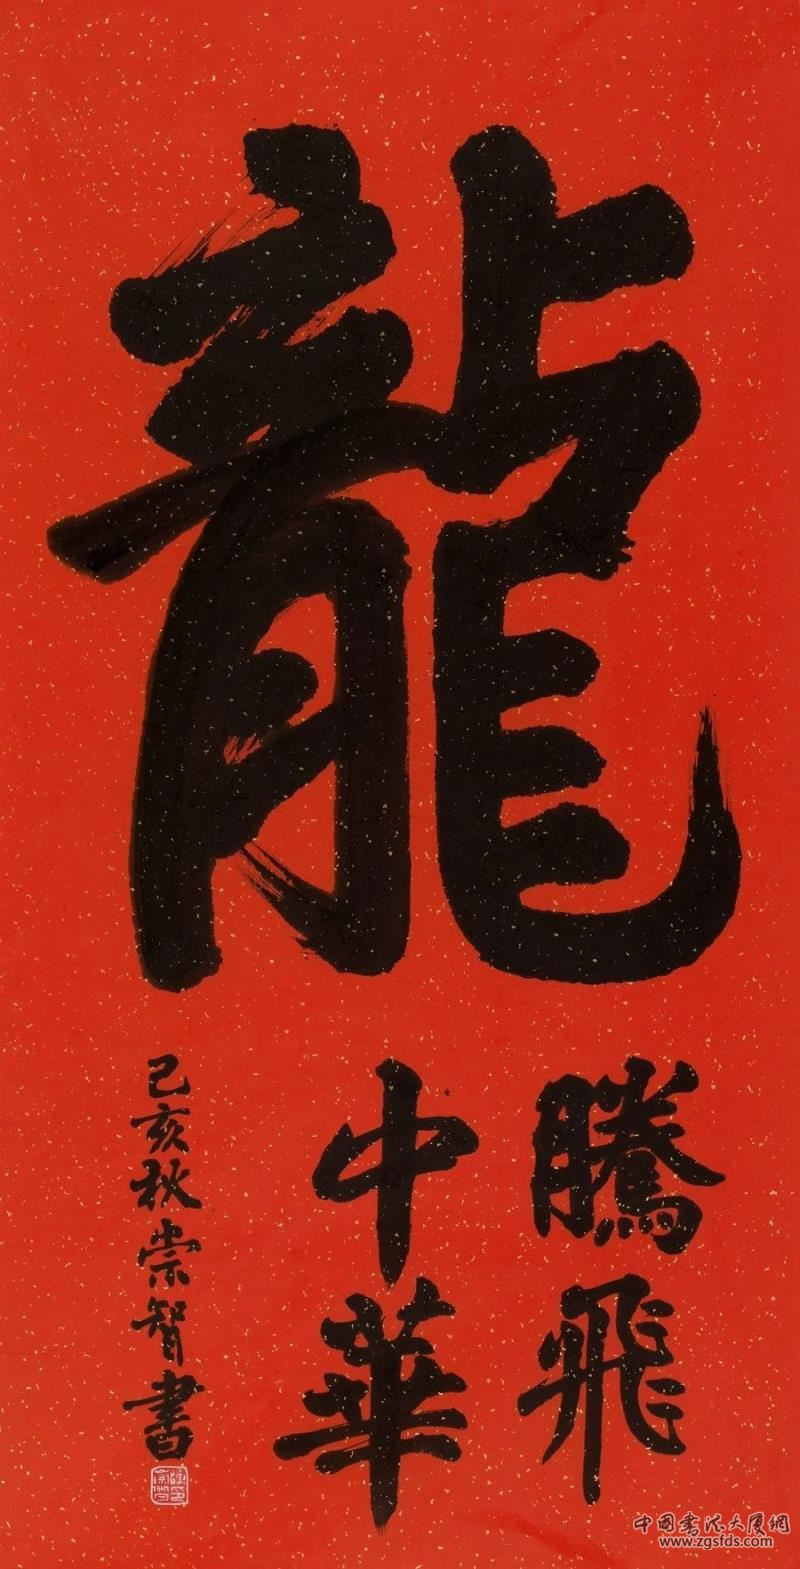 龍
騰飛
中華
己亥秋崇智書
中國書法大厦網
www.zgsfds.com